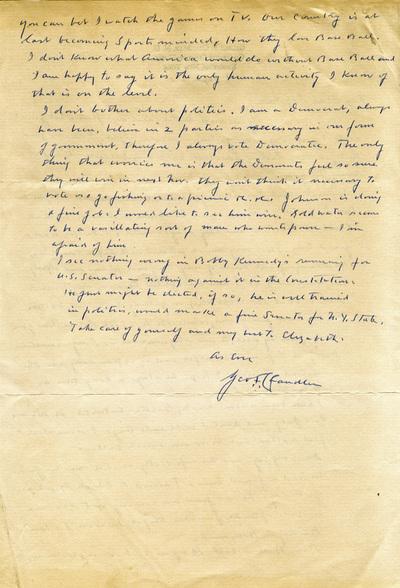 you can bet I watch the games on TV. Our Country is at
last becoming Sports minded, How they love Base Ball.
I don't know what America would do without Base Ball and
I am happy to say it is the only human activity I know of
that is on the level.
I don't bother about politics. I am a Democrat, always
have been, believe in 2 parties as necessary in our form
of government, therefore I always vote Democratic. The only
thing that worries me is that the Democrats feel so sure
they will win in next Nov. they wont think it necessary to
vote or go fishing or to a picnic etc. etc. Johnson is doing
a fine job. I would like to see him win. Goldwater seems
to be a vacillating sort of man who wants power — I'm
afraid of him
I see nothing wrong in Bobby Kennedy's running for
U.S. Senator — nothing against it in the Constitution.
He just might be elected, if so, he is well trained
in politics, would make a fine Senator for N.Y. State.
Take care of yourself and my best to Elizabeth.
As ever
Geo. F. Chandler